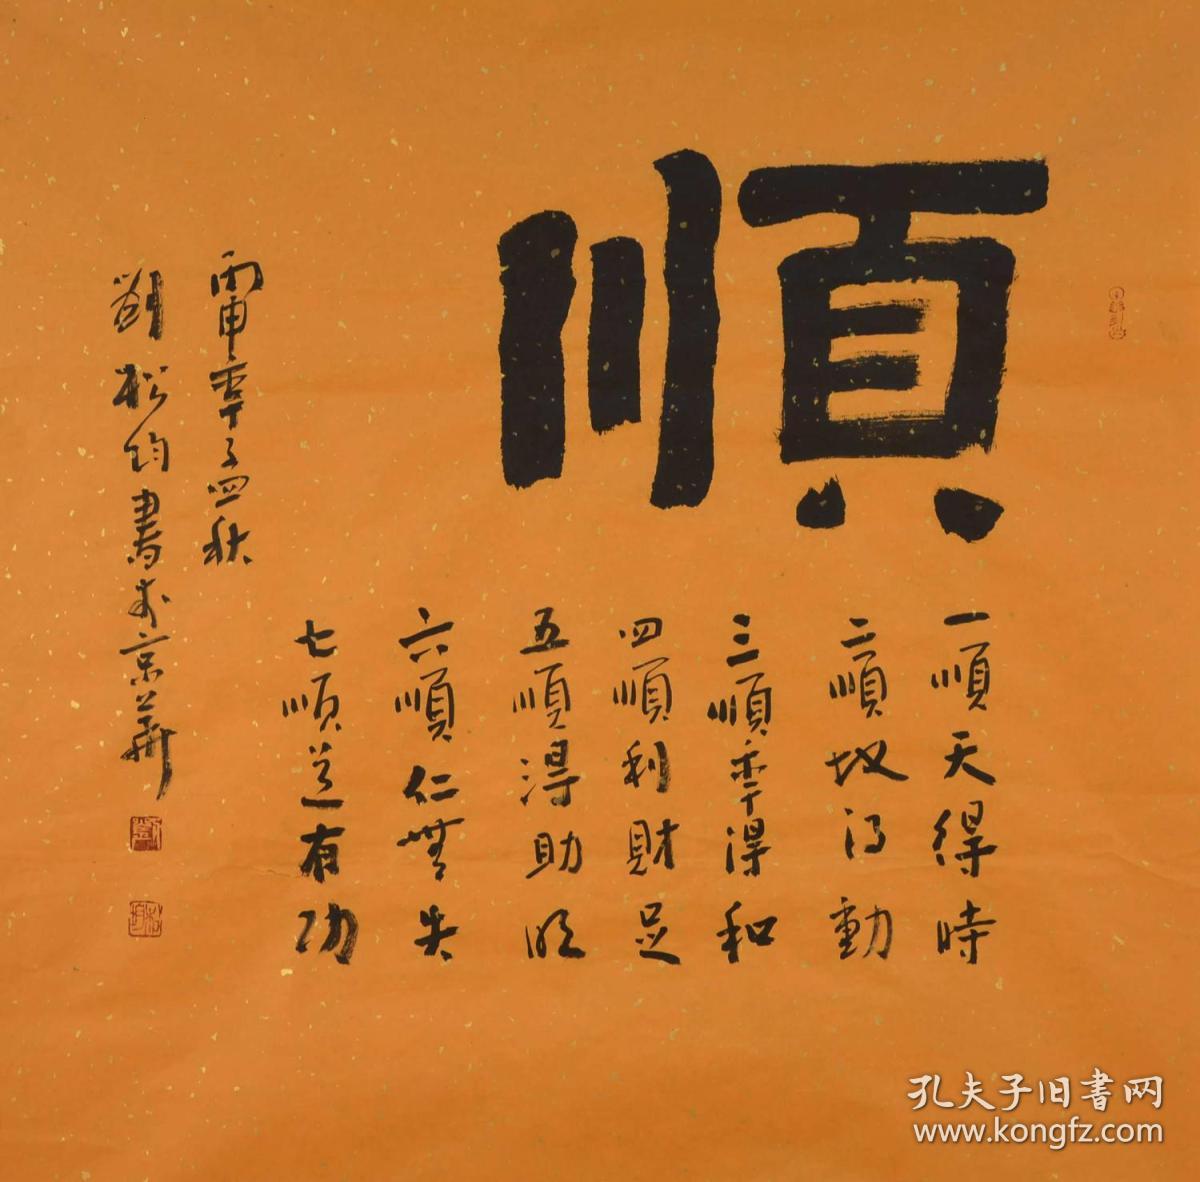 順
一順天得時
二順地得動
三順秊得和
四順利財足
五順得助
六順仁無失
七順道有功
丙申秊 秋
劉松均書於京華
孔夫子旧书网
www.kongfz.com